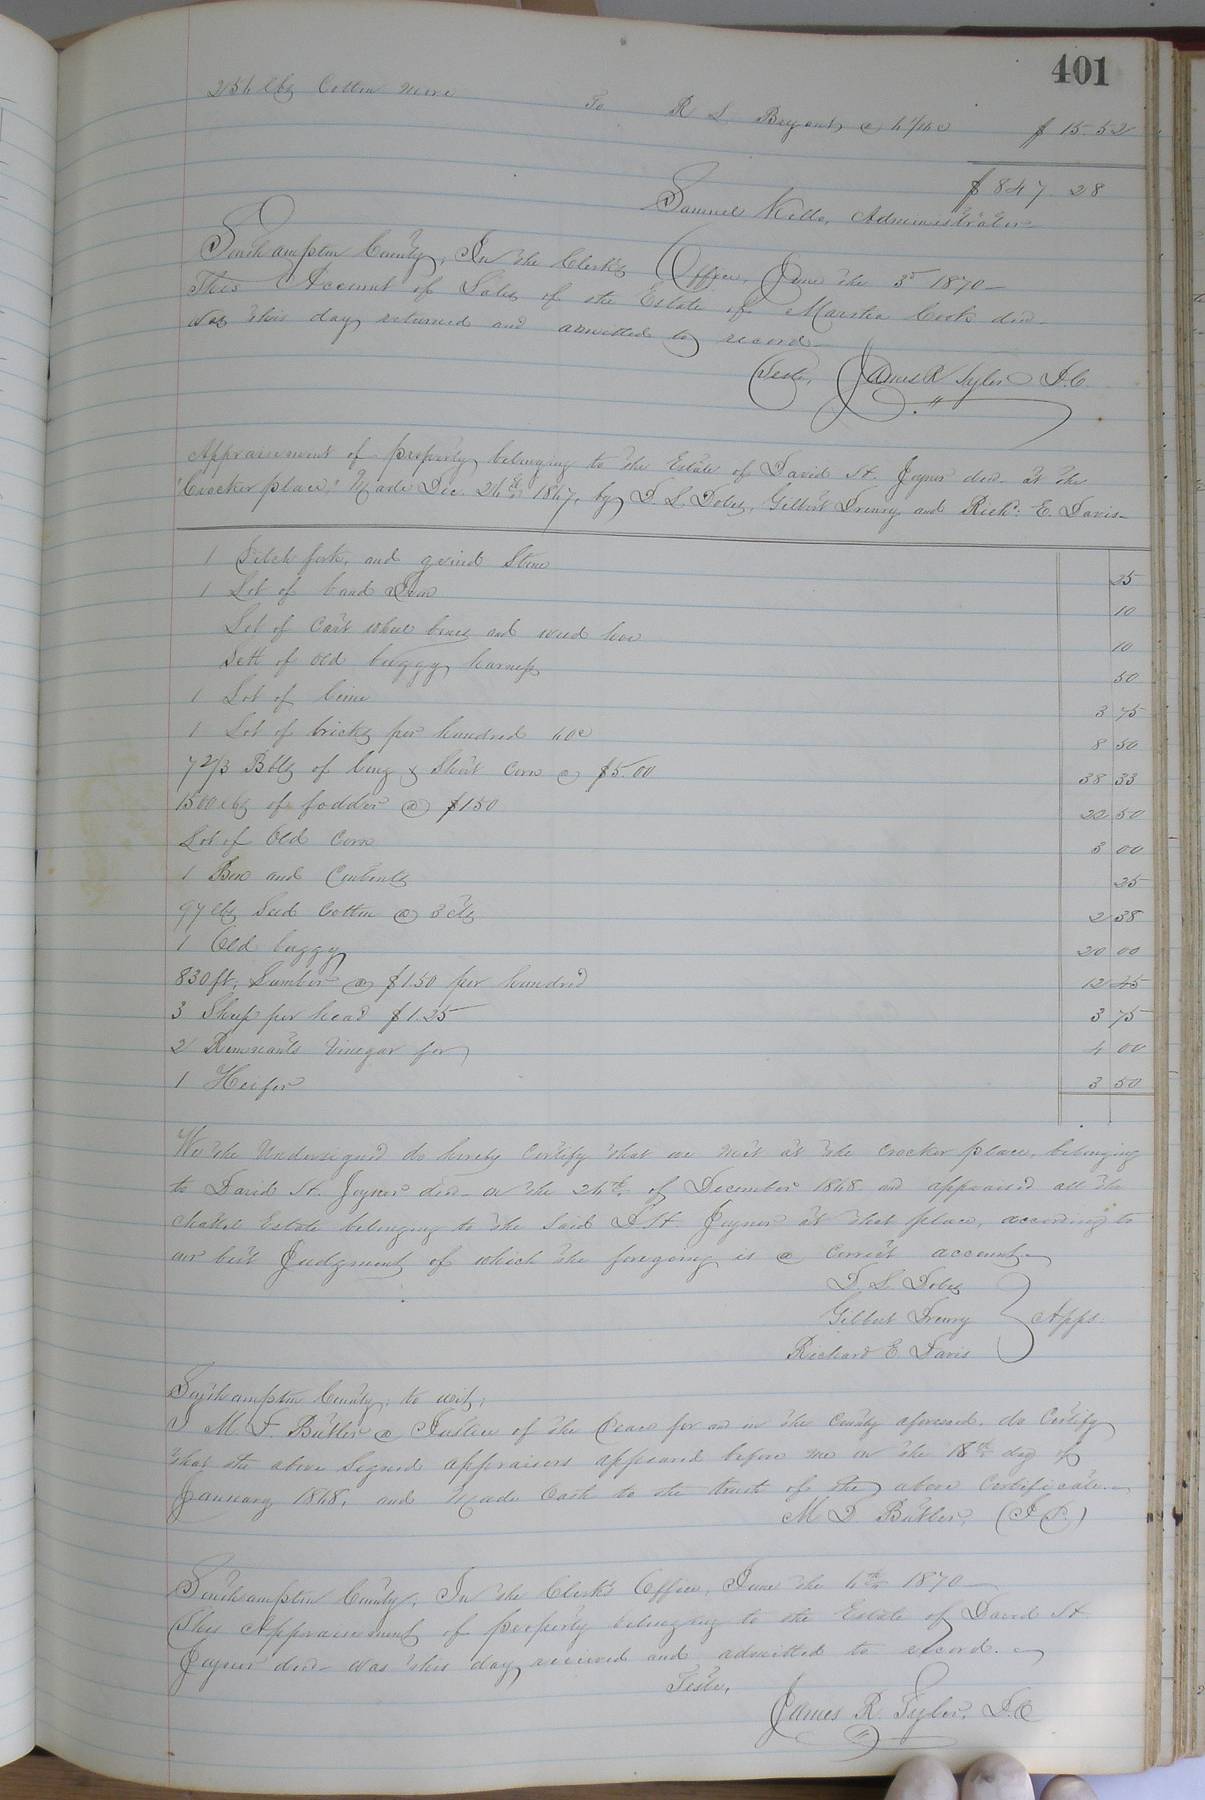 401
254 lbs Cotton more To R S. Bryant, @ 6 1/16 c $ 15.52
$ 847 28
Samuel Kello, Administrator
Southampton County, In the Clerk's Office, June the 3d 1870—
This Account of Sales of the Estate of Marsha Cook decd—
was this day returned and admitted to record—
Teste, James R Tyler D.C.
Appraisement of property belonging to the Estate of David St. Joyner decd. at the
"Crocker place," Made Dec. 24th 1847, by D. S. Doles, Gilbert Drewry and Richd. E. Davis—
1 Pitch fork, and grind Stone 25
1 Lot of band Iron 10
Lot of Cart wheel boxes and weed hoe 10
Sett of Old buggy harness 50
1 Lot of lime 3 75
1 Lot of bricks per hundred 40c 8 50
7 2/3 Bbls of long & Short Corn @ $5.00 38 33
1500 lbs of fodder @ $1.50 22 50
Lot of Old Corn 3 00
1 Box and Contents 25
97 lbs Seed Cotton @ 3 cts 2 38
1 Old buggy 20 00
830 ft, Lumber @ $1.50 per hundred 12 45
3 Sheep per head $1.25 3 75
2 Remnants Vinegar for 4 00
1 Heifer 3 50
We the Undersigned do hereby Certify that we met at the Crocker place, belonging
to David St. Joyner decd— on the 24th. of December 1848 and appraised all the
chattel Estate belonging to the said D St Joyner at that place, according to
our best Judgment, of which the foregoing is a correct account—
D. S. Doles
Gilbert Drewry } Apps.
Richard E. Davis
Southampton County, to wit;
I M. D. Butler a Justice of the Peace for and in the County aforesaid, do Certify
that the above Signed appraisers appeared before me on the 18th day of
January 1848, and Made Oath to the truth of the above Certificate.—
M D. Butler, (J P.)
Southampton County, In the Clerk's Office, June the 4th 1870—
This Appraisement of property belonging to the Estate of David St.
Joyner decd— was this day received and admitted to record.—
Teste,
James R. Tyler, D.C